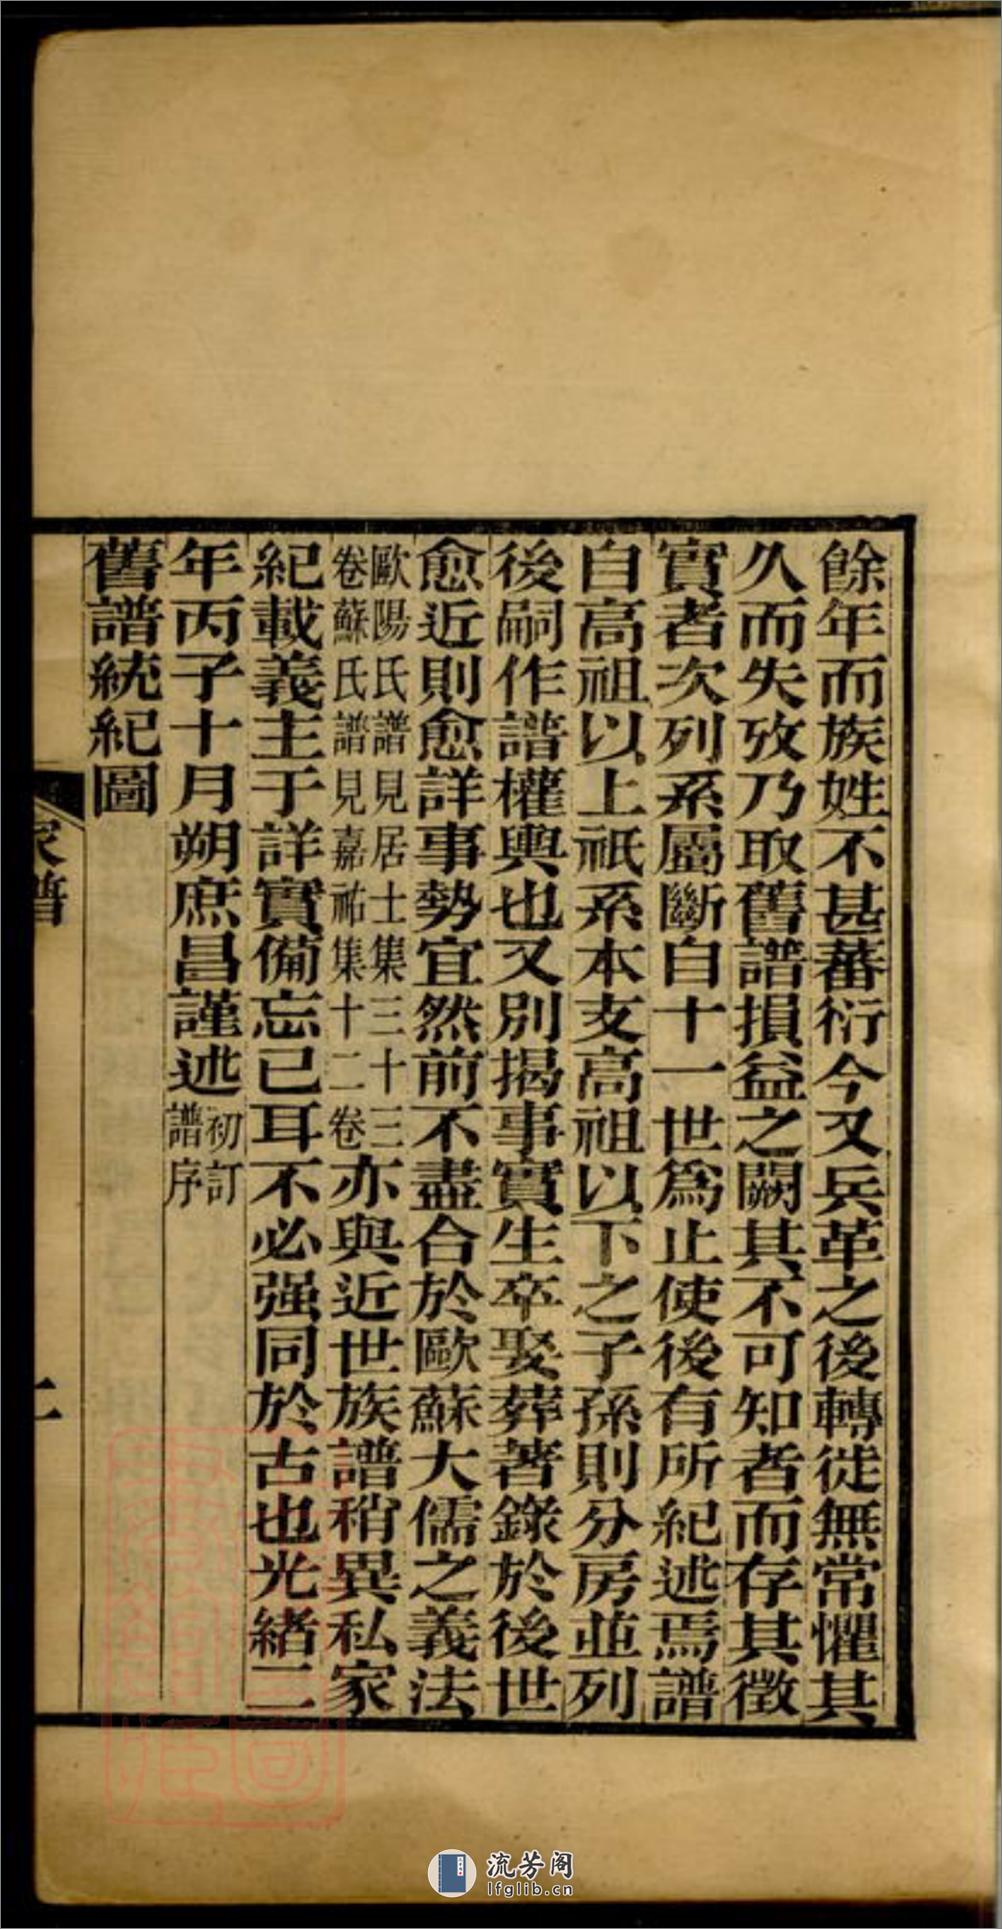 餘年而族姓不甚蕃衍今又兵革之後轉徙無常懼其
久而失攷乃取舊譜損益之闕其不可知者而存其徵
實者次列系屬斷自十一世爲止使後有所紀述焉譜
自高祖以上祇系本支高祖以下之子孫則分房並列
後嗣作譜權輿也又別揭事實生卒娶葬著錄於後世
愈近則愈詳事勢宜然前不盡合於歐蘇大儒之義法
歐陽氏譜見居士集三十三
卷蘇氏譜見嘉祐集十二卷
亦與近世族譜稍異私家
紀載義主于詳實備忘已耳不必强同於古也光緒二
年丙子十月朔庶昌謹述
初訂
譜序
舊譜統紀圖
家譜
流芳阁
lfglib.cn